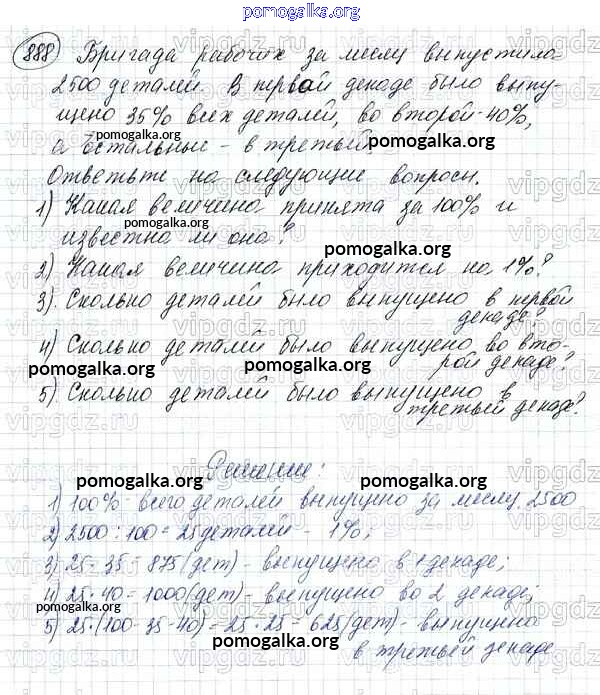 pomogalka.org
888 Бригада рабочих за месяц выпустила
2500 деталей. В первой декаде было выпу-
щено 35% всех деталей, во второй - 40%,
pomogalka.org
а остальные - в третьей.
pomogalka.org
Ответьте на следующие вопросы.
1) Какая величина принята за 100% и
pomogalka.org
известна ли она?
pomogalka.org
2) Какая величина приходится на 1%?
3). Сколько деталей было выпущено в первой
декаде?
pomogalka.org
4) Сколько деталей было выпущено во вто-
рой декаде?
pomogalka.org
pomogalka.org
5) Сколько деталей было выпущено в
третьей декаде?
Решение:
pomogalka.org
1) 100% - всего деталей выпущено за месяц 2500
pomogalka.org
2) 2500 : 100 = 25 деталей - 1%;
3) 25 · 35 = 875 (дет) - выпущено в 1 декаде;
pomogalka.org
4) 25 · 40 = 1000 (дет) - выпущено во 2 декаде;
pomogalka.org
5) 25 · (100 - 35 - 40) = 25 · 25 = 625 (дет) - выпущено
pomogalka.org
в третьей декаде